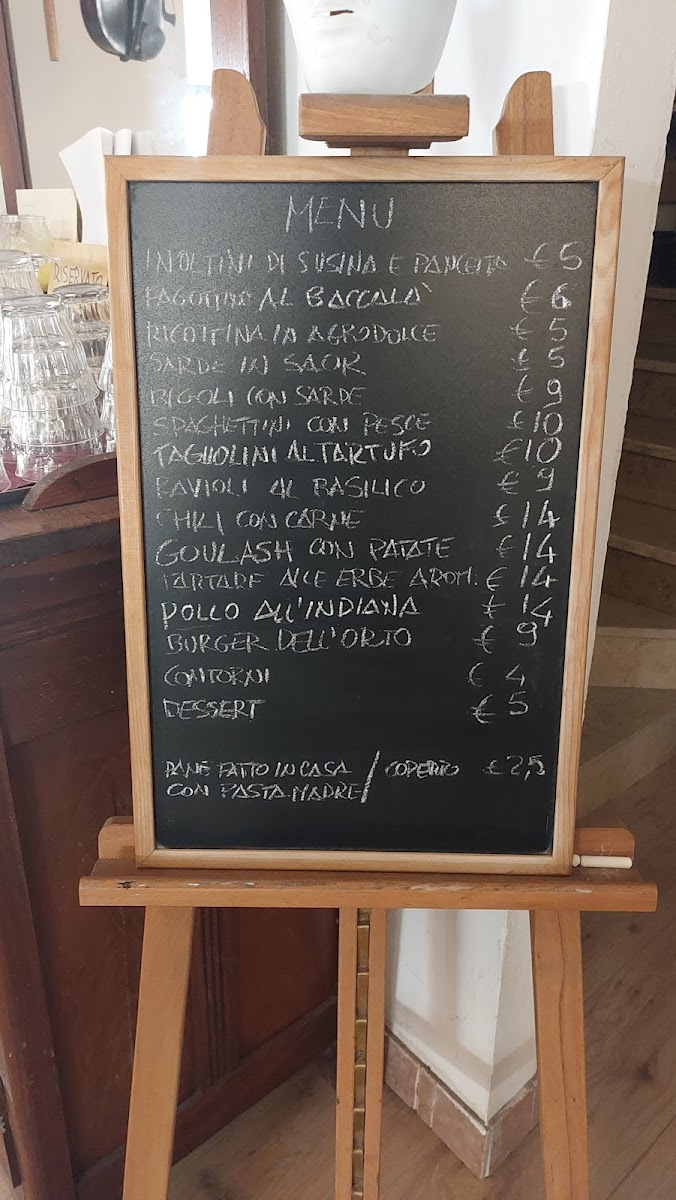 RISERVATO
MENU
INVOLTINI DI SUSINA E PANCETTA € 5
FAGOTTINO AL BACCALA' € 6
RICOTTINA IN AGRODOLCE € 5
SARDE IN SAOR € 5
BIGOLI CON SARDE € 9
SPAGHETTINI CON PESCE € 10
TAGLIOLINI AL TARTUFO € 10
RAVIOLI AL BASILICO € 9
CHILI CON CARNE € 14
GOULASH CON PATATE € 14
TARTARE ALLE ERBE AROM. € 14
POLLO ALL'INDIANA € 14
BURGER DELL'ORTO € 9
CONTORNI € 4
DESSERT € 5
PANE FATTO IN CASA / COPERTO € 2,5
CON PASTA MADRE